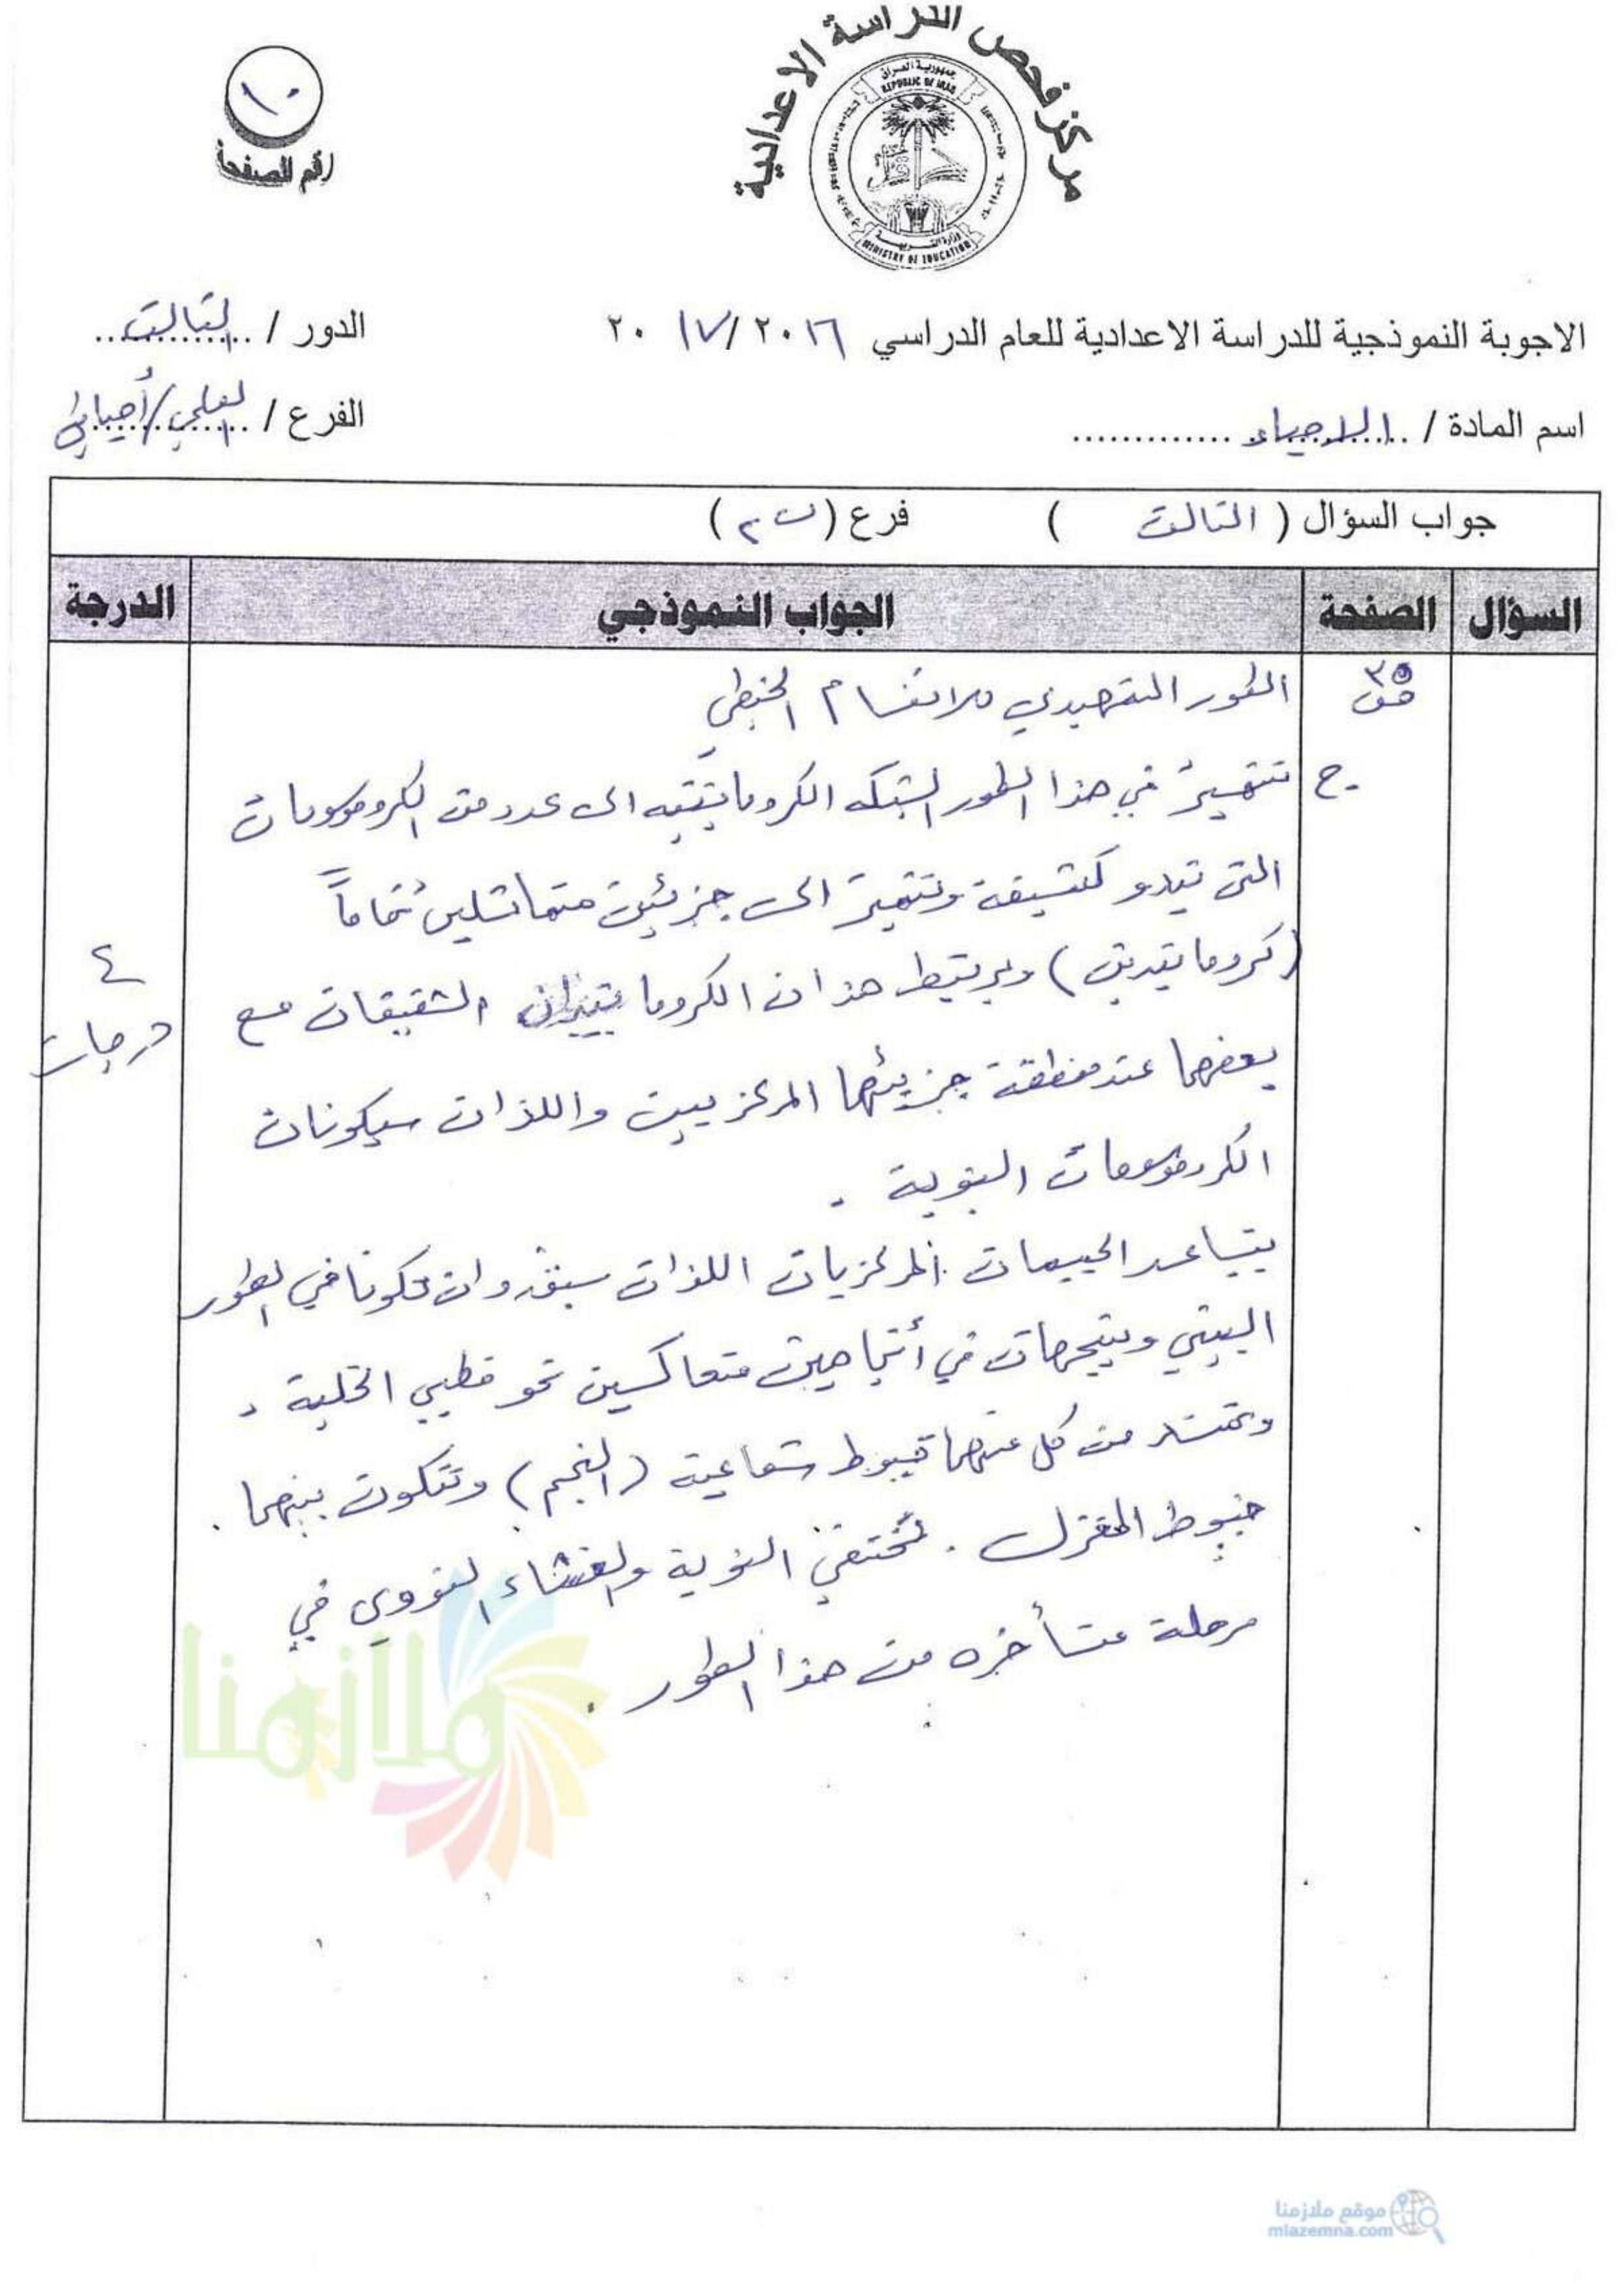 مركز فحص الدراسة الاعدادية
جمهورية العراق
REPUBLIC OF IRAQ
وزارة التربية
MINISTRY OF EDUCATION
١٠
رقم الصفحة
الاجوبة النموذجية للدراسة الاعدادية للعام الدراسي ٢٠١٦ / ٢٠١٧
الدور / الثالث
اسم المادة / الاحياء
الفرع / العلمي / أحيائي
جواب السؤال ( الثالث ) فرع ( ب ٢ )
السؤال الصفحة الجواب النموذجي الدرجة
٣٥
ص
الطور التمهيدي للانقسام الخيطي
ج - تتميز في هذا الطور الشبكه الكروماتينيه الى عدد من الكروموسومات
التي تبدو كثيفة وتتميز الى جزئين متماثلين تماماً
(كروماتيدين) ويرتبط هذان الكروماتيدان الشقيقان مع
بعضهما عند منطقة جزيئهما المركزيين واللذان سيكونان
الكروموسومات البنوية .
يتباعد الجسيمان المركزيان اللذان سبق وان تكونا في الطور
البيني ويتجهان في أتجاهين متعاكسين نحو قطبي الخلية ،
وتمتد من كل منهما خيوط شعاعية (النجم) وتتكون بينهما
خيوط المغزل . تختفي النوية والغشاء النووي في
مرحلة متأخره من هذا الطور .
٤
درجات
ملازمنا
موقع ملازمنا
mlazemna.com